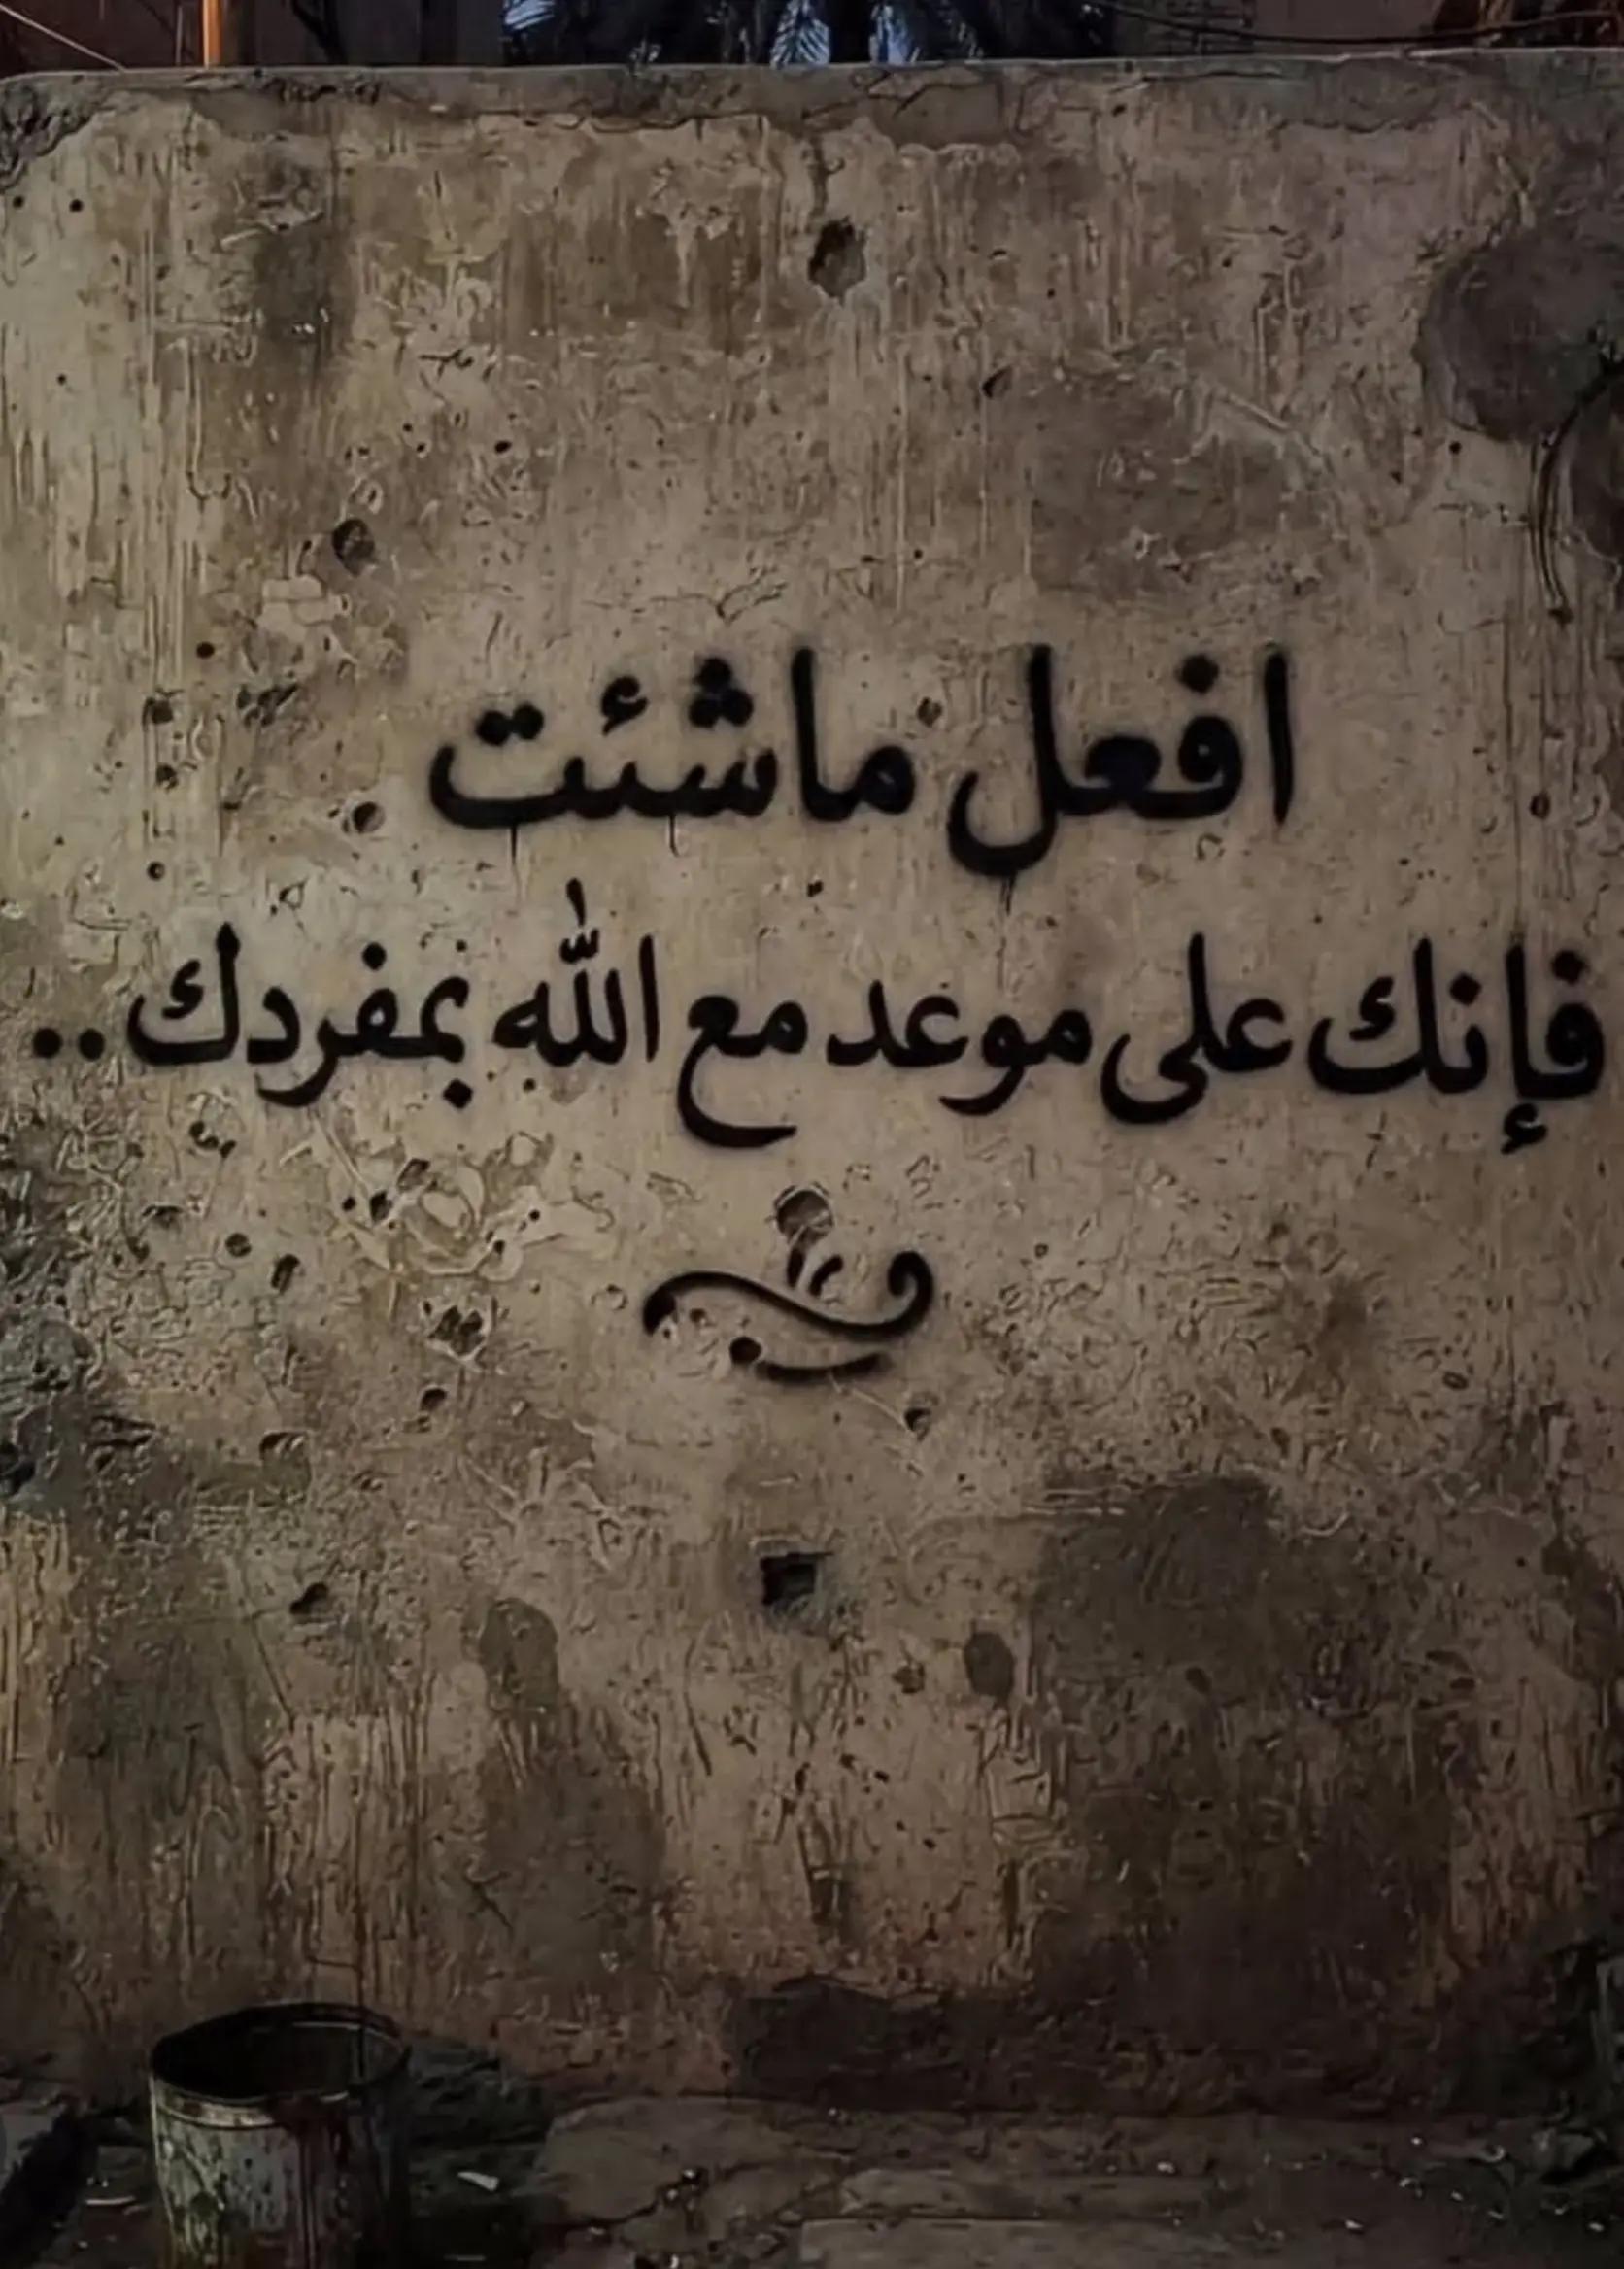 افعل ماشئت
فإنك على موعد مع الله بمفردك..